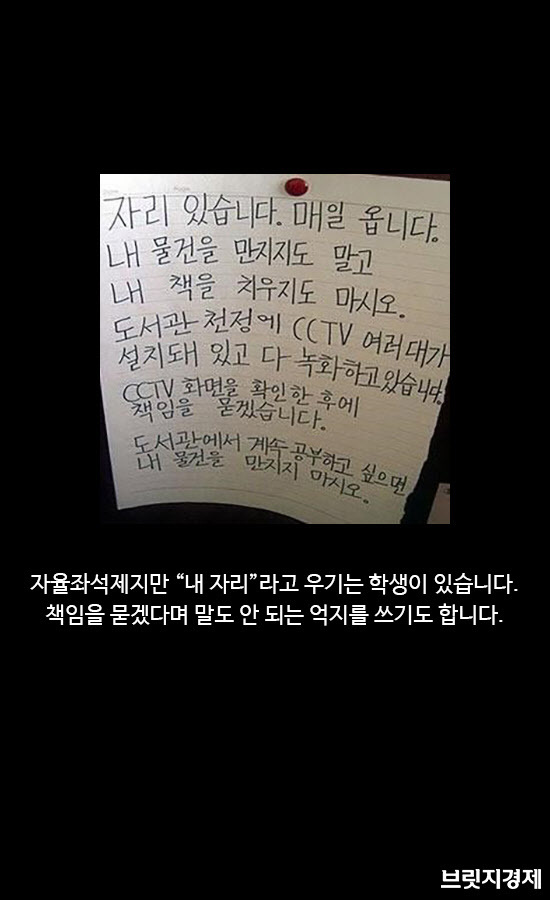 자리 있습니다. 매일 옵니다.
내 물건을 만지지도 말고
내 책을 치우지도 마시오.
도서관 천정에 CCTV 여러대가
설치돼 있고 다 녹화하고 있습니다.
CCTV 화면을 확인한 후에
책임을 묻겠습니다.
도서관에서 계속 공부하고 싶으면
내 물건을 만지지 마시오.
자율좌석제지만 “내 자리”라고 우기는 학생이 있습니다.
책임을 묻겠다며 말도 안 되는 억지를 쓰기도 합니다.
브릿지경제